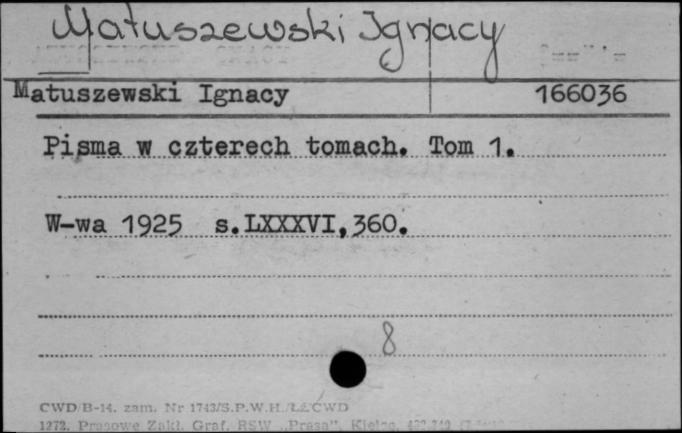 Matuszewski Ignacy
Matuszewski Ignacy 166036
Pisma w czterech tomach. Tom 1.
W-wa 1925 s.LXXXVI,360.
8
CWD/B-14. zam. Nr 1743/S.P.W.H./ŁŻ/CWD
1272. Prasowe Zakł. Graf. RSW „Prasa”, Kielce,